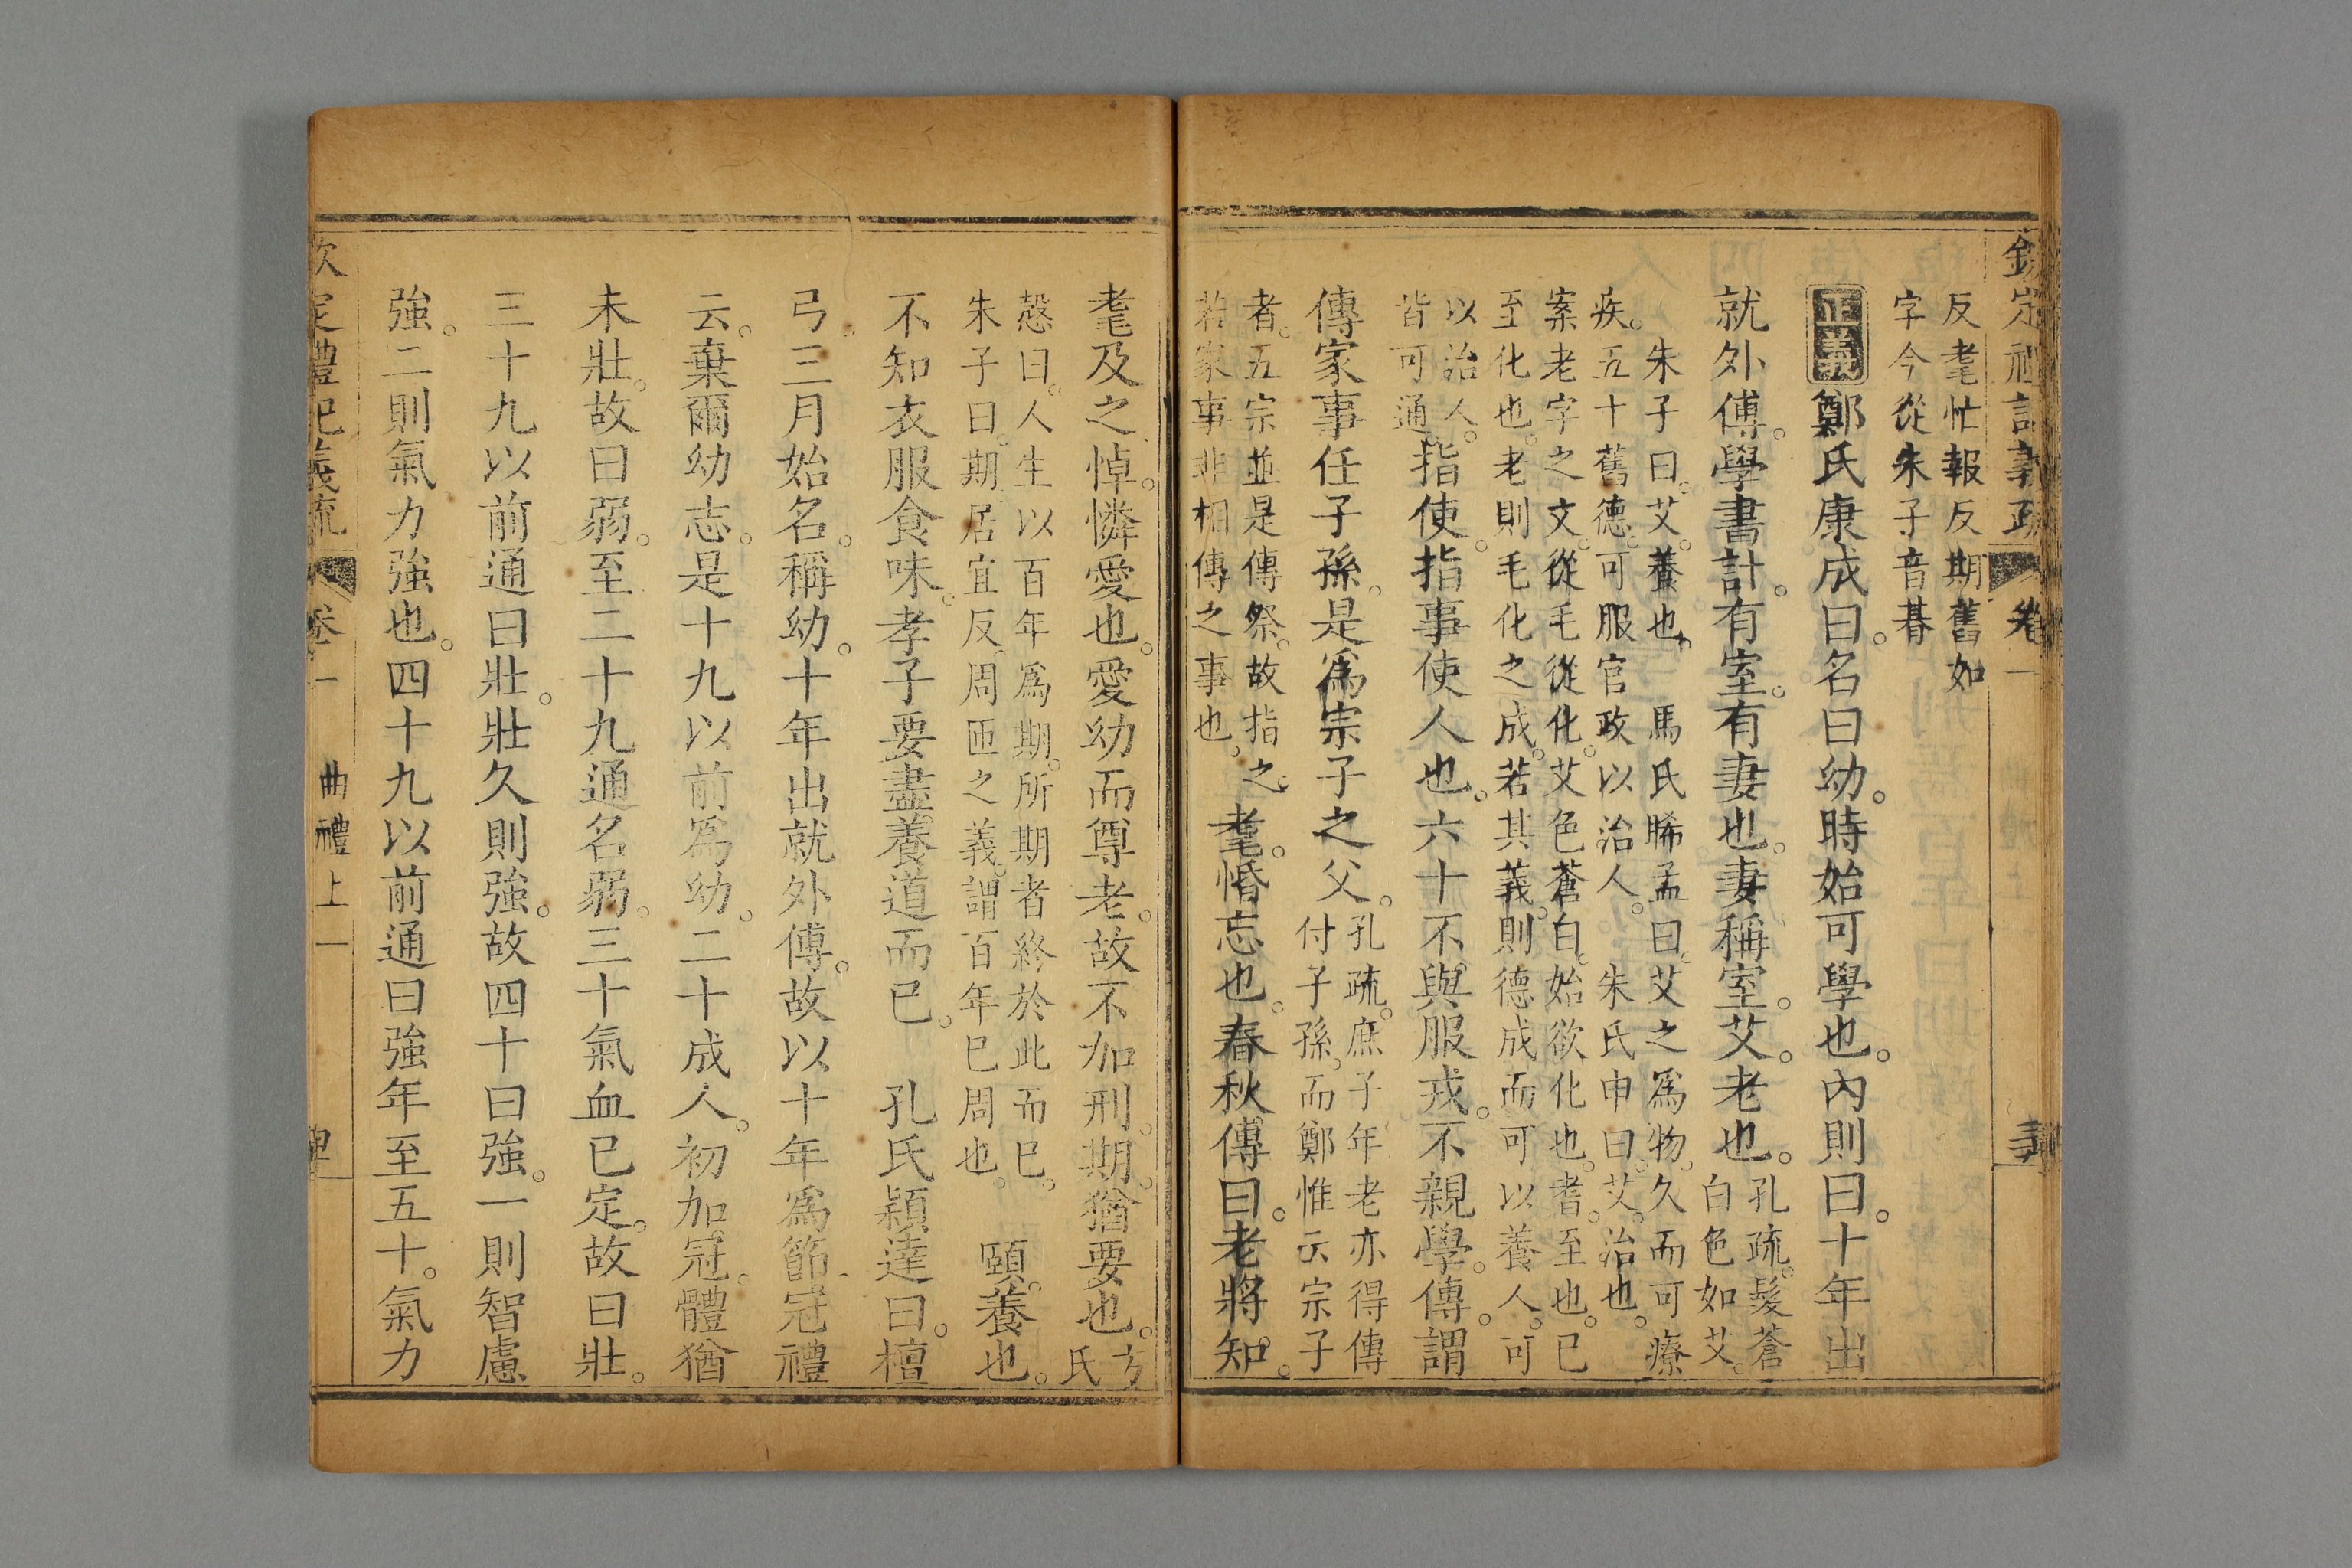 欽定禮記義疏 卷一
反耄忙報反期舊如
字今從朱子音朞
正義 鄭氏康成曰。名曰幼。時始可學也。內則曰。十年出
就外傅。學書計。有室。有妻也。妻稱室。艾。老也。孔疏。髮蒼
白色如艾。
朱子曰。艾。養也。 馬氏晞孟曰。艾之爲物。久而可療
疾。五十舊德。可服官政以治人。 朱氏申曰。艾。治也。
案老字之文。從毛從化。艾色蒼白。始欲化也。耆。至也。已
至化也。老則毛化之成。若其義。則德成而可以養人。可
以治人。
皆可通。指使。指事使人也。六十不與服戎。不親學。傳。謂
傳家事任子孫。是爲宗子之父。孔疏。庶子年老亦得傳
付子孫。而鄭惟云宗子
者。五宗並是傳祭。故指之。
若家事非相傳之事也。耄。惛忘也。春秋傳曰。老將知。
耄及之。悼。憐愛也。愛幼而尊老。故不加刑。期。猶要也。方
氏
慤曰。人生以百年爲期。所期者終於此而已。
朱子曰。期。居宜反。周匝之義。謂百年已周也。 頤。養也。
不知衣服食味。孝子要盡養道而已。 孔氏穎達曰。檀
弓。三月始名。稱幼。十年出就外傅。故以十年爲節。冠禮
云。棄爾幼志。是十九以前爲幼。二十成人。初加冠。體猶
未壯。故曰弱。至二十九通名弱。三十氣血已定。故曰壯。
三十九以前通曰壯。壯久則強。故四十曰強。一則智慮
強。二則氣力強也。四十九以前通曰強。年至五十。氣力
欽定禮記義疏 卷一 曲禮上一